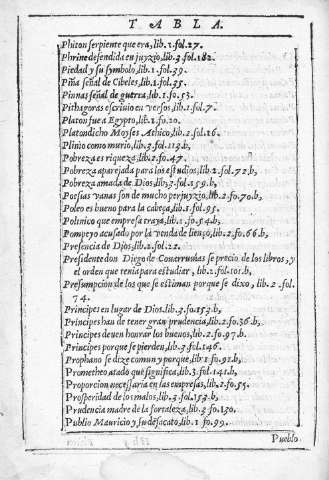 TABLA.
Phiton serpiente que era, lib.1.fol.27.
Phrine defendida en juyzio, lib.3.fol.182.
Piedad y su symbolo, lib.1.fol.39.
Piña señal de Cibeles, lib.1.fol.35.
Pinnas señal de guerra, lib.1.fo.53.
Pithagoras escriuio en versos, lib.1.fol.7.
Platon fue a Egypto, lib.1.fo.10.
Platon dicho Moyses Athico, lib.2.fol.16.
Plinio como murio, lib.3.fol.113.b,
Pobreza es riqueza, lib.2.fo.47.
Pobreza aparejada para los estudios, lib.2.fol.72.b,
Pobreza amada de Dios, lib,3.fol.159.b,
Poesias vanas son de mucho perjuyzio, lib.2.fo.70.b,
Poleo es bueno para la cabeça, lib.1.fol.95.
Polinico que empresa traya, lib.1.fo.54.b,
Pompeyo acusado por la venda de lienço, lib.2.fo.66.b,
Presencia de Dios, lib.2.fol.22.
Presidente don Diego de Couarruuias se precio de los libros, y
el orden que tenia para estudiar, lib.2.fol.101.b,
Presumpcion de los que se estiman porque se dixo, lib.2.fol.
74.
Principes en lugar de Dios, lib.3.fo.153.b,
Principes han de tener gran prudencia, lib.2.fo.36.b,
Principes deuen honrar los buenos, lib.2.fo.97.b.
Principes porque se pierden, lib.3.fol.146.
Prophano se dize comun y porque, lib.1.fo.92.b,
Prometheo atado que significa, lib.3.fol.141.b,
Proporcion necessaria en las empresas, lib.1.fo.55.
Prosperidad de los malos, lib.3.fol.153.b,
Prudencia madre de la fortaleza, lib.3.fo.130.
Publio Mauricio y su desacato, lib.1.fo.99.
Pueblo